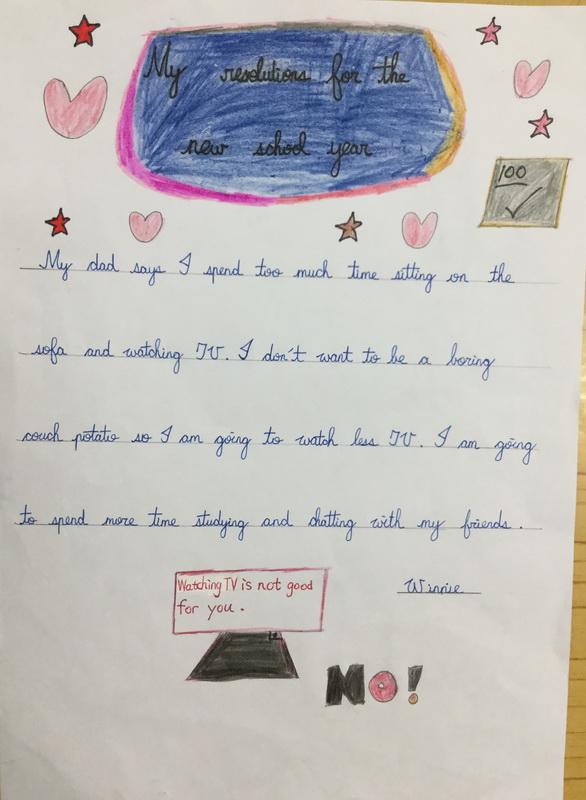 My resolutions for the
new school year
100
My dad says I spend too much time sitting on the
sofa and watching TV. I don't want to be a boring
couch potato so I am going to watch less TV. I am going
to spend more time studying and chatting with my friends.
Winnie
Watching TV is not good
for you.
NO!